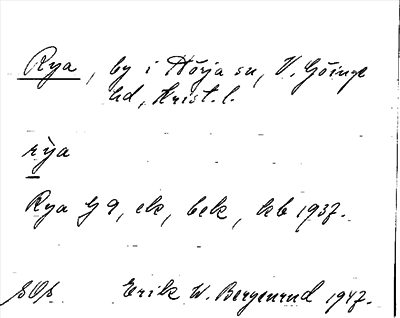 Rya, by i Hörja sn, V. Göinge
hd, Krist. l.
rỳa
Rya G 9, ek, bek, kb 1937.
Erik W. Bergenrud 1947.